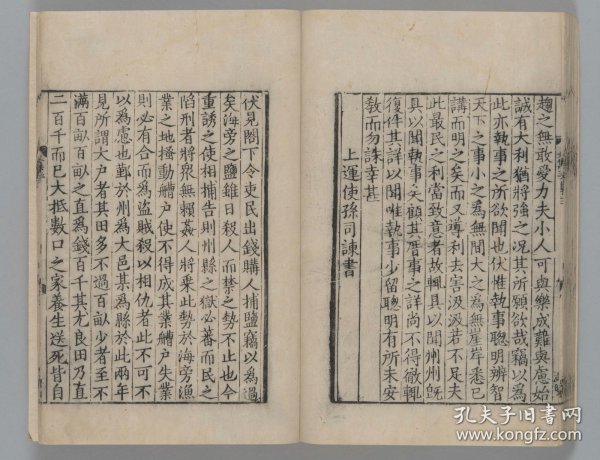 趨之無敢愛力夫小人可與樂成難與慮始
誠有大利猶將強之况其所願欲哉竊以為
此亦執事之所欲聞也伏惟執事聰明辨智
天下之事小之為無間大之為無崖岸悉已
講而明之矣而又薄利去害汲汲若不足夫
此最民之利當致意者故輒具以聞州州既
具以聞執事矣顧其厝事之詳尚不得徹輒
復件其詳以聞唯執事少留聰明有所未安
教而勿誅幸甚
上運使孫司諫書
伏見閤下令吏民出錢購人捕鹽竊以為過
矣海旁之鹽雖日殺人而禁之勢不止也今
重誘之使相捕告則州縣之獄必蕃而民之
陷刑者將眾無賴姦人將乘此勢於海旁漁
業之地搔動艚户使不得成其業艚户失業
則必有合而為盜賊殺以相仇者此不可不
以為慮也鄞於州為大邑某為縣於此兩年
見所謂大户者其田多不過百畝少者至不
滿百畝百畝之直為錢百千其尤良田乃直
二百千而已大抵數口之家養生送死皆自
孔夫子旧書网
www.kongfz.com